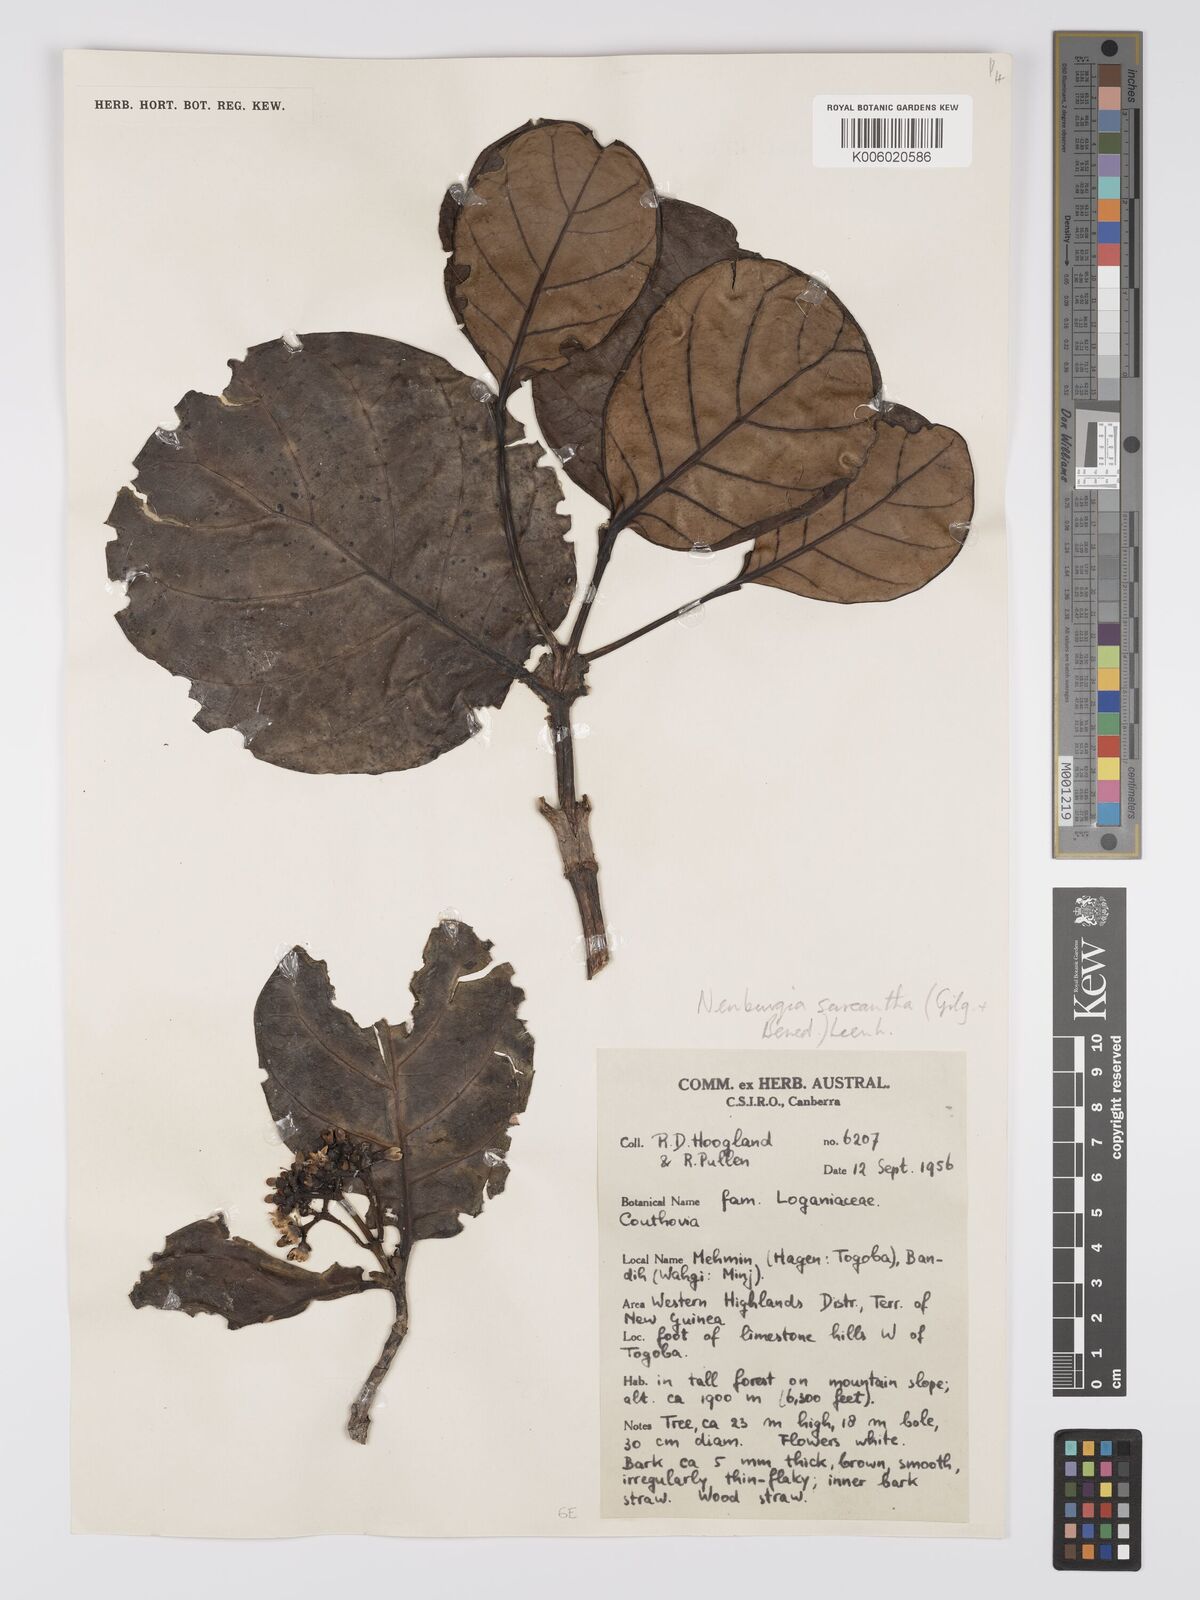 HERB. HORT. BOT. REG. KEW.
ROYAL BOTANIC GARDENS KEW
K006020586
Neuburgia sarcantha (Gilg. +
Bened.) Leenh.
COMM. ex HERB. AUSTRAL.
C.S.I.R.O., Canberra
Coll. R.D. Hoogland no. 6207
& R. Pullen
Date 12 Sept. 1956
Botanical Name fam. Loganiaceae.
Couthovia
Local Name Mehmin (Hagen: Togoba), Ban-
dih (Wahgi: Minj).
Area Western Highlands Distr., Terr. of
New Guinea
Loc. foot of limestone hills W of
Togoba.
Hab. in tall forest on mountain slope;
alt. ca 1900 m (6,300 feet).
Notes Tree, ca 23 m high, 18 m bole,
30 cm diam. Flowers white.
Bark ca 5 mm thick, brown, smooth,
irregularly thin-flaky; inner bark
straw. Wood straw.
6E
inches
Density
Don Williams
M001219
centimeters
Royal Botanic Gardens
Kew
copyright reserved
0 1 2 3 4 5 6 7 8 9 10
cm